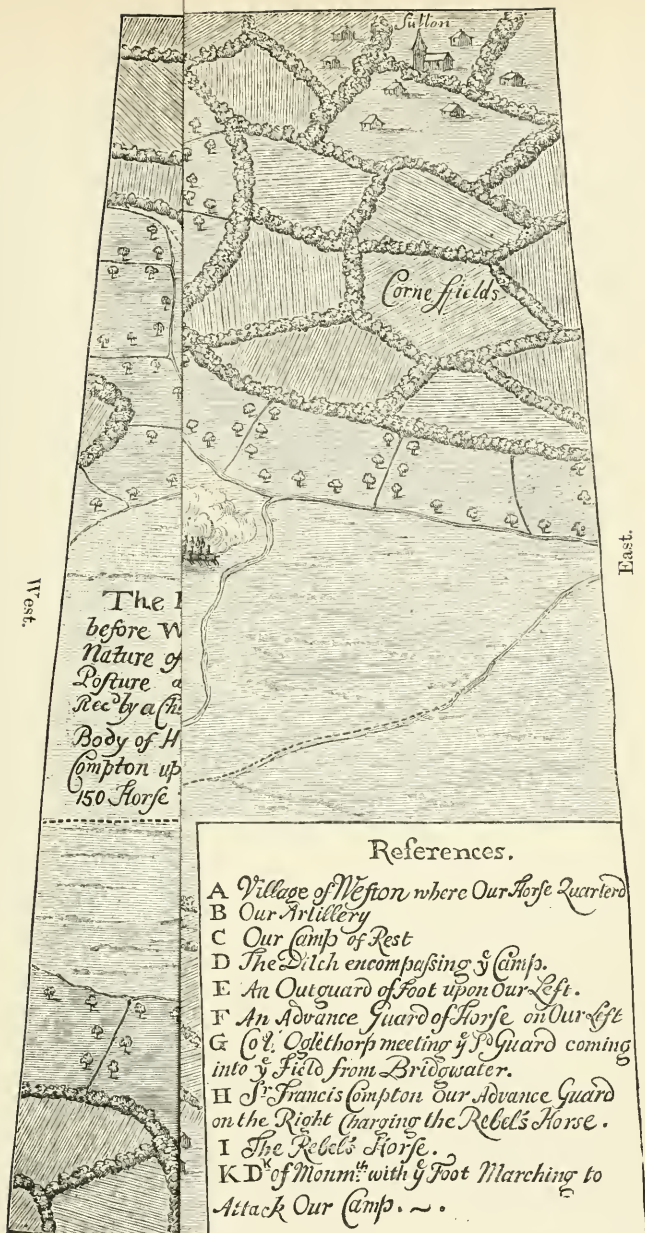 Sutton
Corne ffields
West.
East.
The
before W
Nature of
Posture a
Rec.d by a Ch
Body of H
Compton up
150 Horse
References.
A Village of Weſton where Our Horse Quarterd
B Our Artillery
C Our Camp of Rest
D The Ditch encompaſsing yͤ Camp.
E An Outguard of Foot upon Our Left.
F An Advance Guard of Horse on Our Left
G Coll. Oglethorp meeting yͤ Sᵈ Guard coming
into yͤ Field from Bridgwater.
H Sʳ Francis Compton Our Advance Guard
on the Right Charging the Rebel's Horse.
I The Rebel's Horse.
K Dᵏ of Monmᵗʰ with yͤ Foot Marching to
Attack Our Camp. ~ .